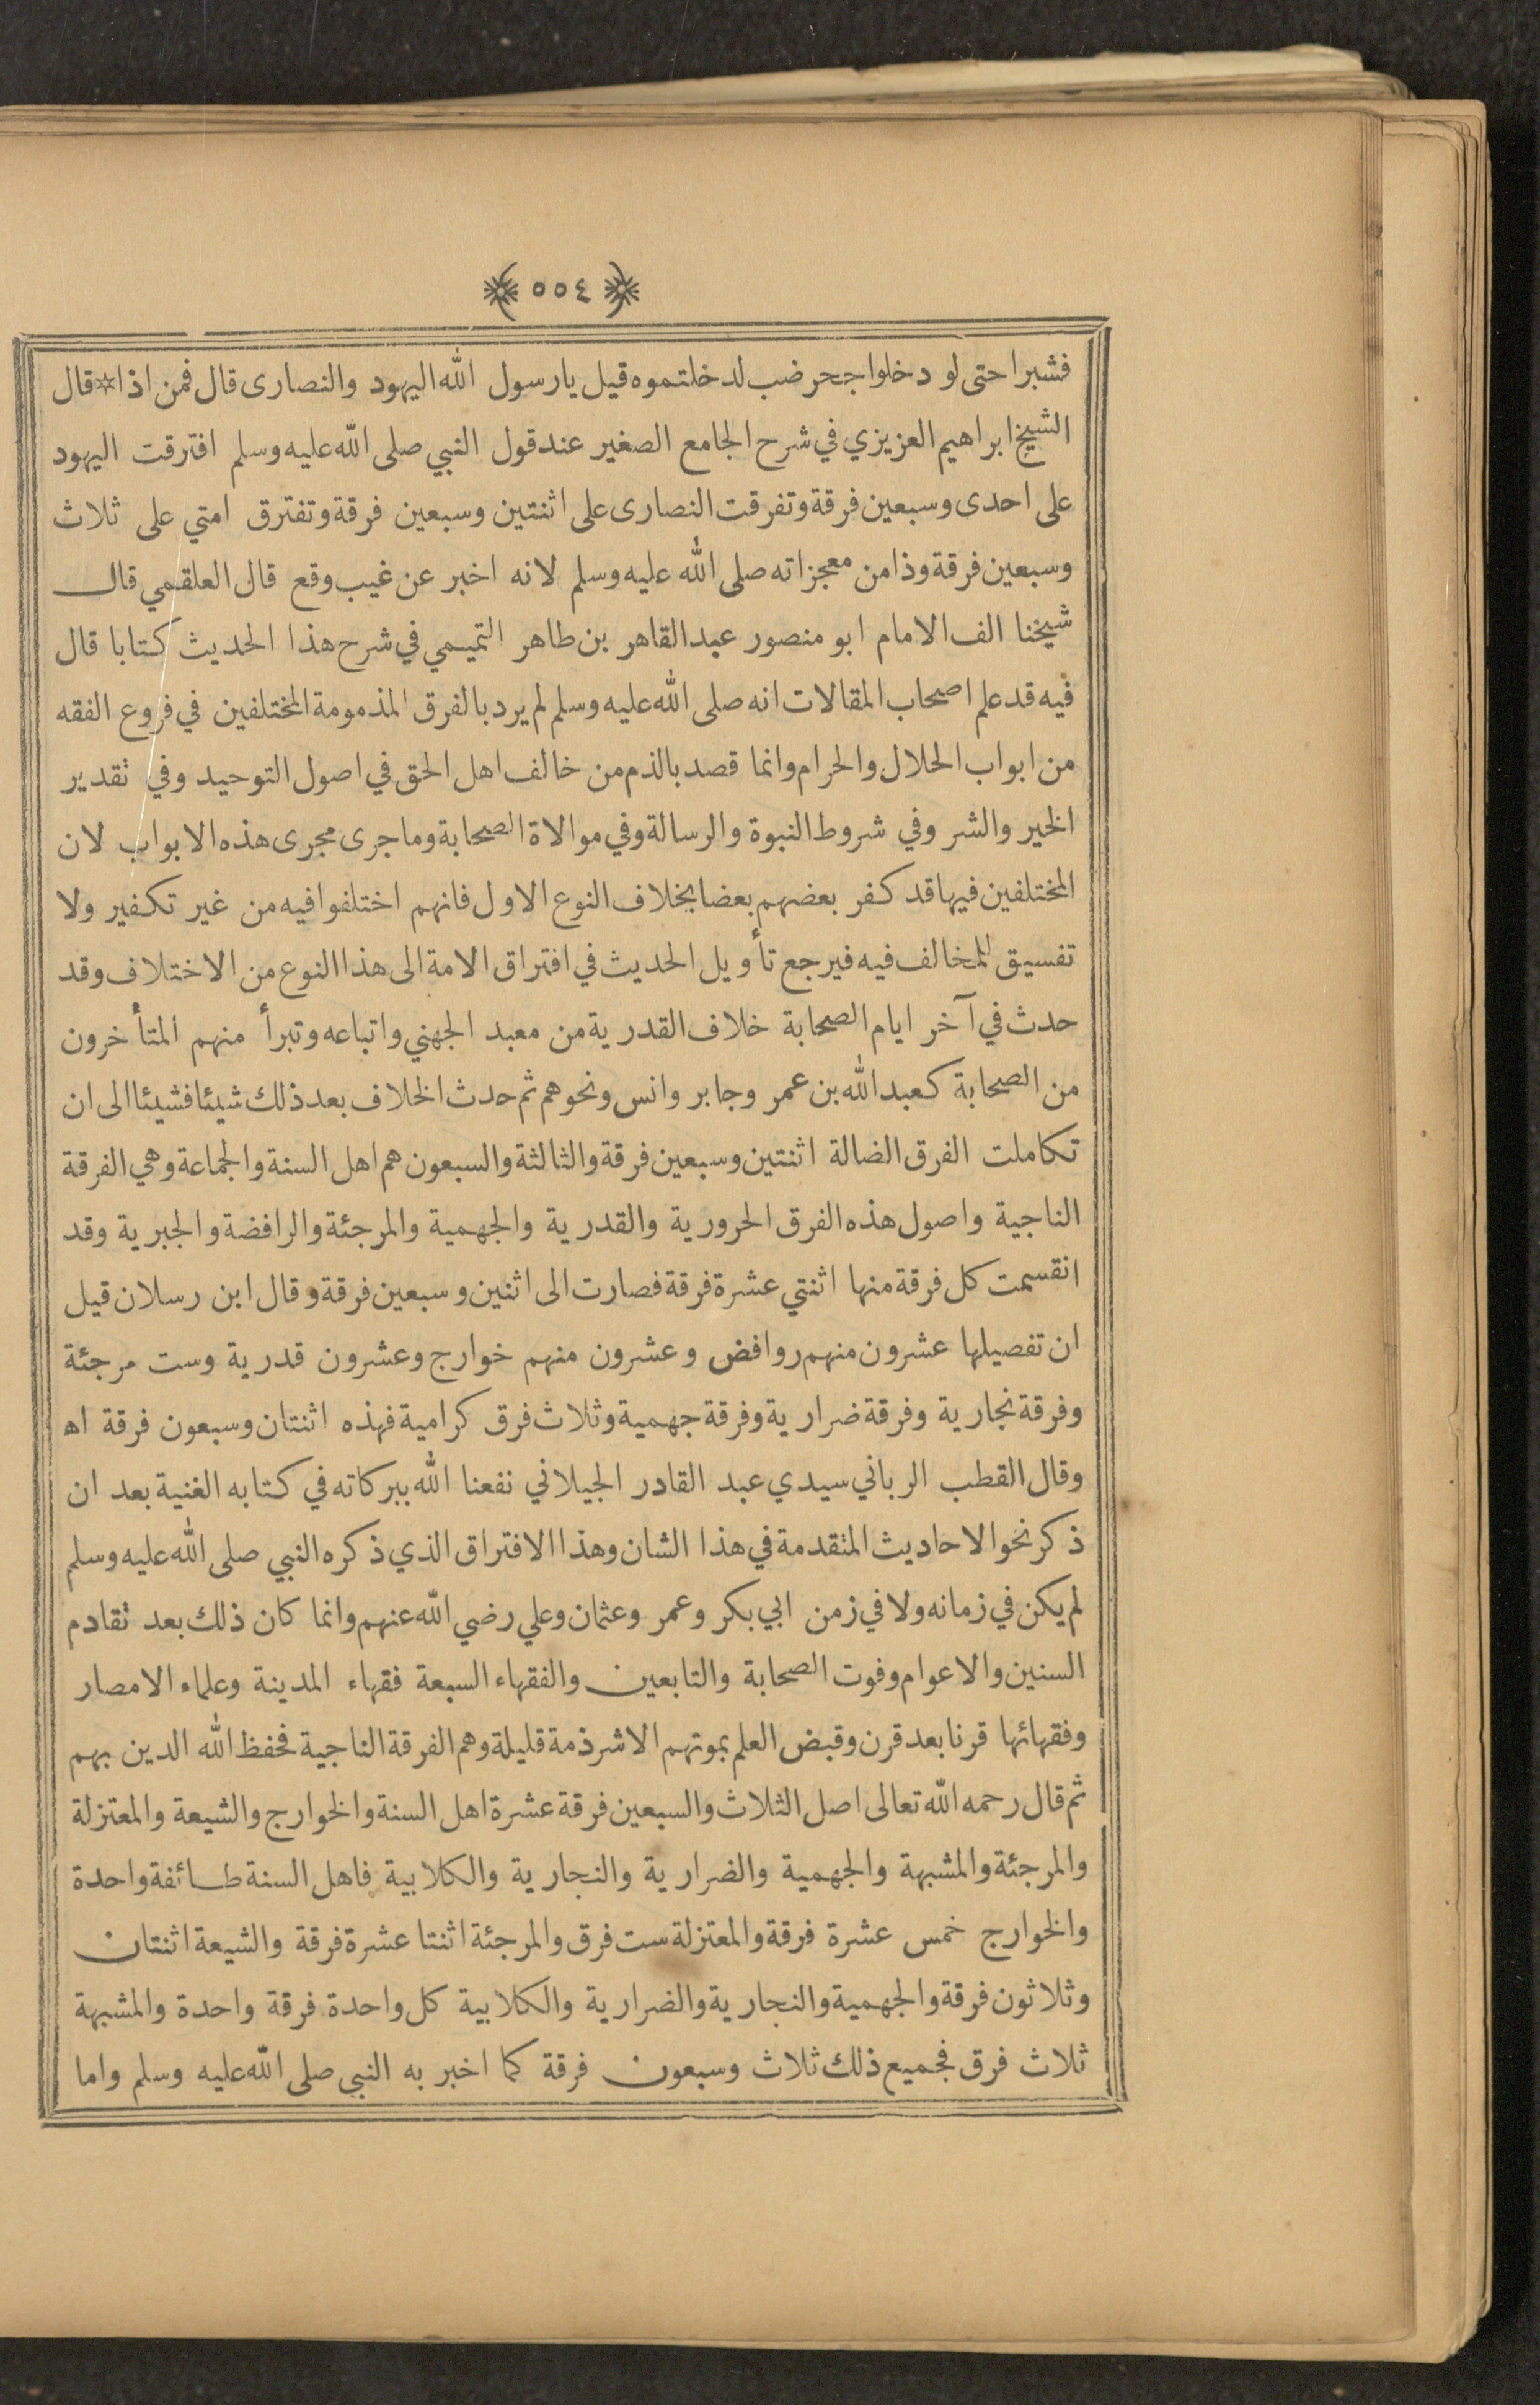 ﴿ ٥٥٤ ﴾
فشبرا حتى لو دخلوا جحر ضب لدخلتموه قيل يارسول الله اليهود والنصارى قال فمن اذا * قال
الشيخ ابراهيم العزيزي في شرح الجامع الصغير عند قول النبي صلى الله عليه وسلم افترقت اليهود
على احدى وسبعين فرقة وتفرقت النصارى على اثنتين وسبعين فرقة وتفترق امتي على ثلاث
وسبعين فرقة وذا من معجزاته صلى الله عليه وسلم لانه اخبر عن غيب وقع قال العلقمي قال
شيخنا الف الامام ابو منصور عبد القاهر بن طاهر التميمي في شرح هذا الحديث كتابا قال
فيه قد علم اصحاب المقالات انه صلى الله عليه وسلم لم يرد بالفرق المذمومة المختلفين في فروع الفقه
من ابواب الحلال والحرام وانما قصد بالذم من خالف اهل الحق في اصول التوحيد وفي تقدير
الخير والشر وفي شروط النبوة والرسالة وفي موالاة الصحابة وما جرى مجرى هذه الابواب لان
المختلفين فيها قد كفر بعضهم بعضا بخلاف النوع الاول فانهم اختلفوا فيه من غير تكفير ولا
تفسيق للمخالف فيه فيرجع تأويل الحديث في افتراق الامة الى هذا النوع من الاختلاف وقد
حدث في آخر ايام الصحابة خلاف القدرية من معبد الجهني واتباعه وتبرأ منهم المتأخرون
من الصحابة كعبد الله بن عمر وجابر وانس ونحوهم ثم حدث الخلاف بعد ذلك شيئا فشيئا الى ان
تكاملت الفرق الضالة اثنتين وسبعين فرقة والثالثة والسبعون هم اهل السنة والجماعة وهي الفرقة
الناجية واصول هذه الفرق الحرورية والقدرية والجهمية والمرجئة والرافضة والجبرية وقد
انقسمت كل فرقة منها اثنتي عشرة فرقة فصارت الى اثنين وسبعين فرقة وقال ابن رسلان قيل
ان تفصيلها عشرون منهم روافض وعشرون منهم خوارج وعشرون قدرية وست مرجئة
وفرقة نجارية وفرقة ضرارية وفرقة جهمية وثلاث فرق كرامية فهذه اثنتان وسبعون فرقة اه
وقال القطب الرباني سيدي عبد القادر الجيلاني نفعنا الله ببركاته في كتابه الغنية بعد ان
ذكر نحو الاحاديث المتقدمة في هذا الشان وهذا الافتراق الذي ذكره النبي صلى الله عليه وسلم
لم يكن في زمانه ولا في زمن ابي بكر وعمر وعثمان وعلي رضي الله عنهم وانما كان ذلك بعد تقادم
السنين والاعوام وفوت الصحابة والتابعين والفقهاء السبعة فقهاء المدينة وعلماء الامصار
وفقهائها قرنا بعد قرن وقبض العلم بموتهم الاشرذمة قليلة وهم الفرقة الناجية فحفظ الله الدين بهم
ثم قال رحمه الله تعالى اصل الثلاث والسبعين فرقة عشرة اهل السنة والخوارج والشيعة والمعتزلة
والمرجئة والمشبهة والجهمية والضرارية والنجارية والكلابية فاهل السنة طائفة واحدة
والخوارج خمس عشرة فرقة والمعتزلة ست فرق والمرجئة اثنتا عشرة فرقة والشيعة اثنتان
وثلاثون فرقة والجهمية والنجارية والضرارية والكلابية كل واحدة فرقة واحدة والمشبهة
ثلاث فرق فجميع ذلك ثلاث وسبعون فرقة كما اخبر به النبي صلى الله عليه وسلم واما